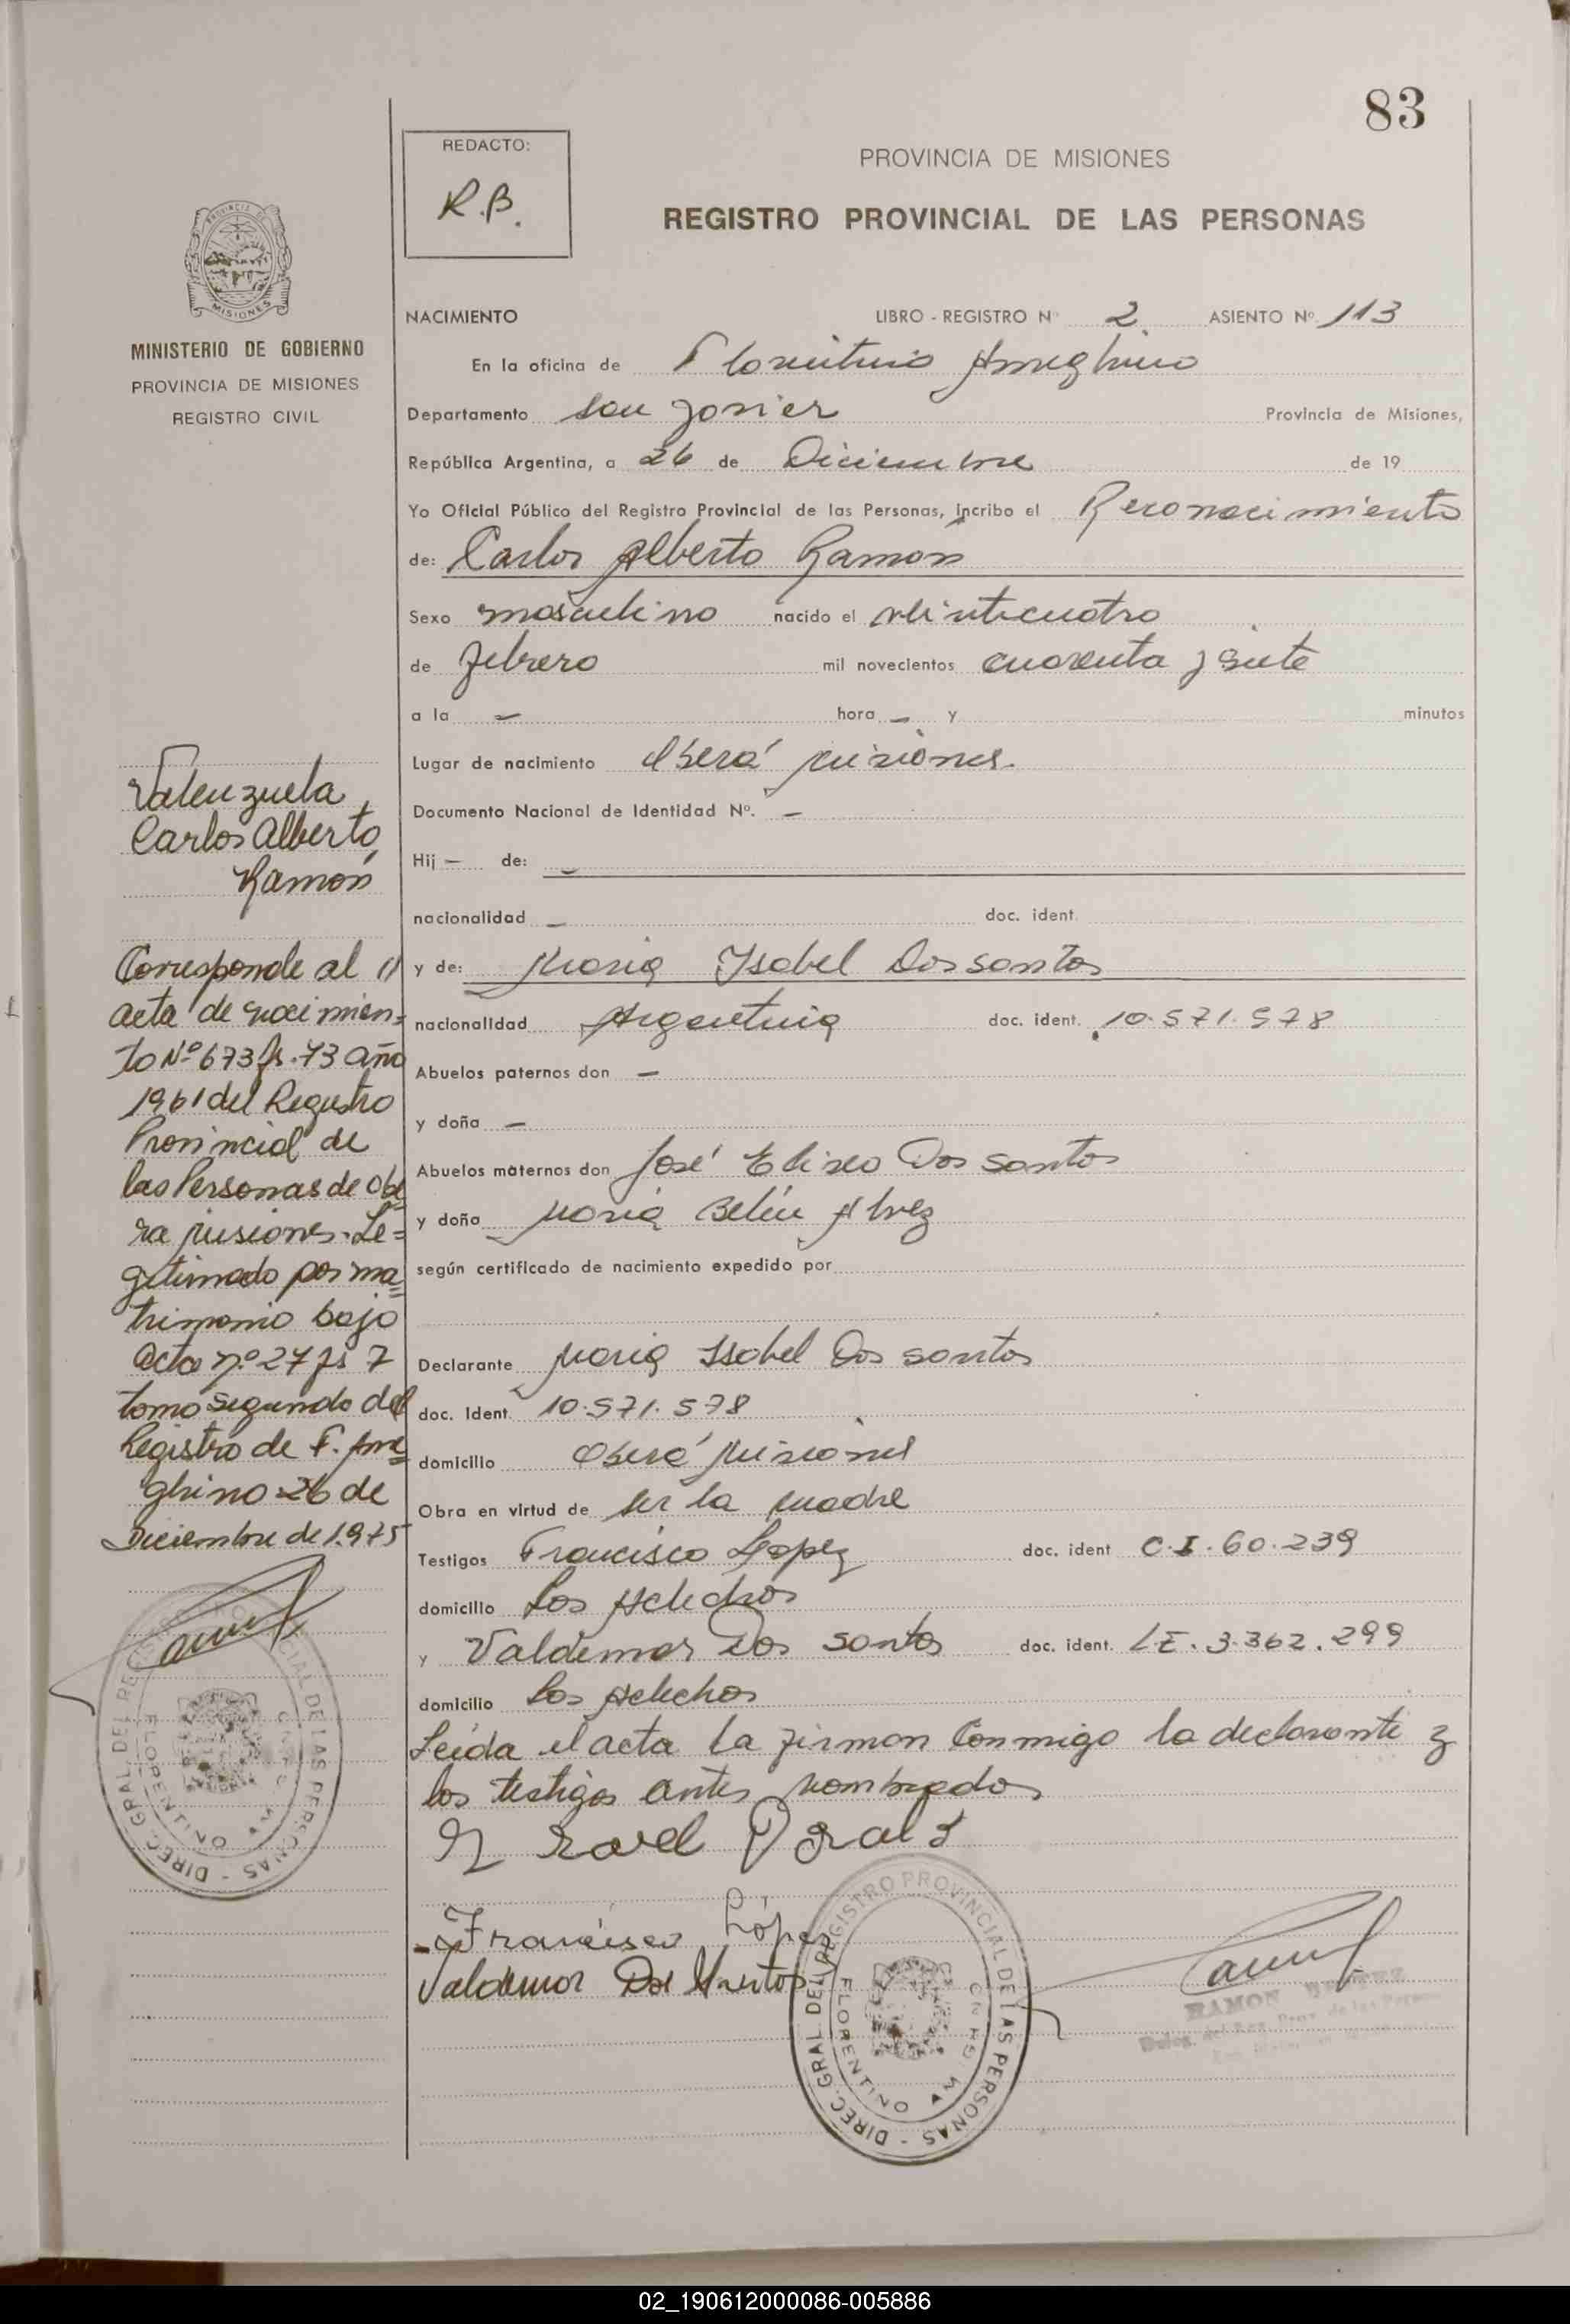 83
REDACTO:
R.B.
PROVINCIA DE MISIONES
REGISTRO PROVINCIAL DE LAS PERSONAS
MISIONES
MINISTERIO DE GOBIERNO
PROVINCIA DE MISIONES
REGISTRO CIVIL
Valenzuela,
Carlos Alberto
Ramón
Corresponde al
acta de nacimien=
to Nº 673 fs. 73 año
1961 del Registro
Provincial de
las Personas de Obe
ra misiones. Le=
gitimado por ma=
trimonio bajo
acta nº 27 fs 7
tomo segundo del
Registro de F. Ame=
ghino 26 de
Diciembre de 1.975
DIREC. GRAL. DEL REGISTRO PROVINCIAL DE LAS PERSONAS
FLORENTINO AMEGHINO
NACIMIENTO LIBRO - REGISTRO Nº 2 ASIENTO Nº 113
En la oficina de Florentino Ameghino
Departamento San Javier Provincia de Misiones,
República Argentina, a 26 de Diciembre de 19
Yo Oficial Público del Registro Provincial de las Personas, incribo el Reconocimiento
de: Carlos Alberto Ramón
Sexo masculino nacido el veinticuatro
de febrero mil novecientos cuarenta y siete
a la – hora – y minutos
Lugar de nacimiento Oberá misiones.
Documento Nacional de Identidad Nº. –
Hij – de: –
nacionalidad – doc. ident.
y de: Maria Isabel Dos santos
nacionalidad Argentina doc. ident. 10.571.578
Abuelos paternos don –
y doña –
Abuelos maternos don José Eliseo Dos santos
y doña Maria Belén Alvez
según certificado de nacimiento expedido por
Declarante Maria Isabel Dos santos
doc. Ident. 10.571.578
domicilio Oberá Misiones
Obra en virtud de ser la madre
Testigos Francisco Lopez doc. ident C.I. 60.239
domicilio Los Helechos
y Valdemar Dos santos doc. ident. L.E. 3.362.299
domicilio Los Helechos
Leída el acta la firman conmigo la declarante y
los testigos antes nombrados
Francisco López
Valdemar Dos Santos
DIREC. GRAL. DEL REGISTRO PROVINCIAL DE LAS PERSONAS
FLORENTINO AMEGHINO
RAMON BENITEZ
02_190612000086-005886